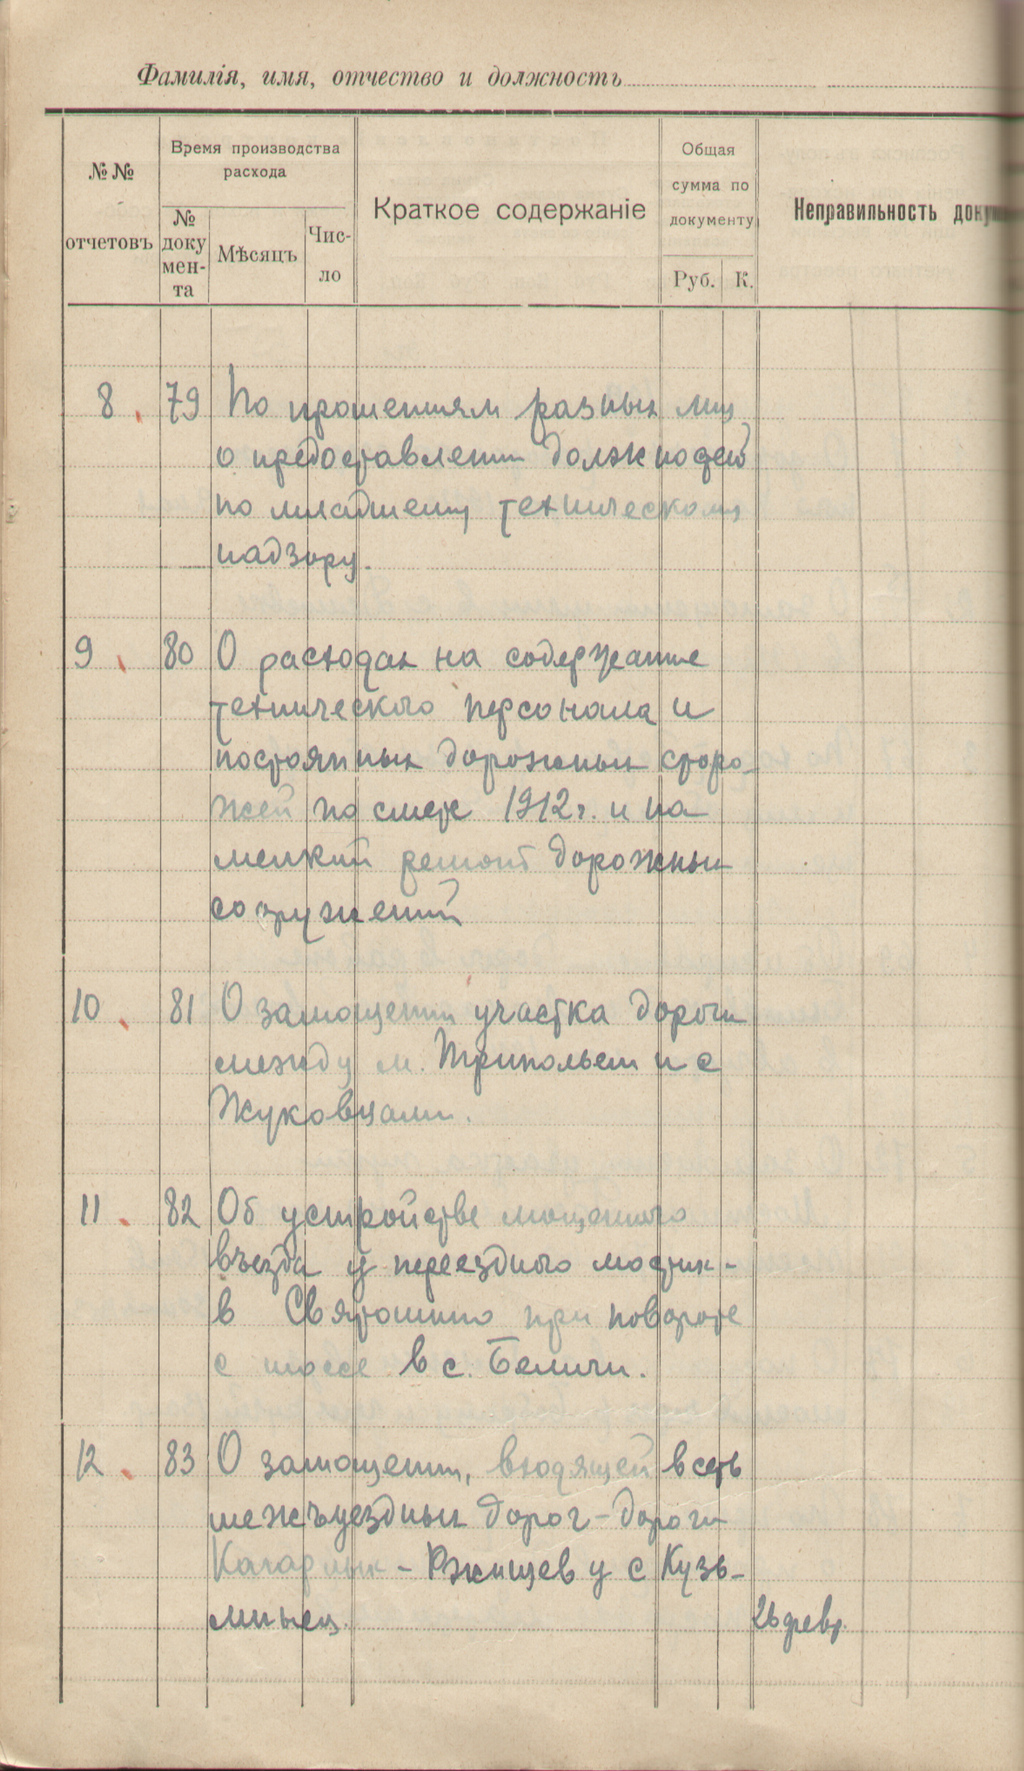 Фамилія, имя, отчество и должность
№№ отчетовъ
Время производства расхода
№ доку мен- та
Мѣсяцъ
Чис- ло
Краткое содержаніе
Общая сумма по документу
Руб. К.
Неправильность
8. 79 По прошениям разных лиц
о предоставлении должностей
по младшему техническому
надзору.
9. 80 О расходах на содержание
технического персонала и
постоянных дорожных сторо-
жей по смете 1912 г. и на
мелкий ремонт дорожных
сооружений
10. 81 О замощении участка дороги
между м. Трипольем и с
Жуковцами.
11. 82 Об устройстве мощенного
въезда у переездного мостик-
в Святошино при повороте
с шоссе в с. Беличи.
12. 83 О замощении, входящей в сеть
межъуездных дорог - дороги
Кагарлык - Ржищев у с Кузь-
минец.
26 февр.